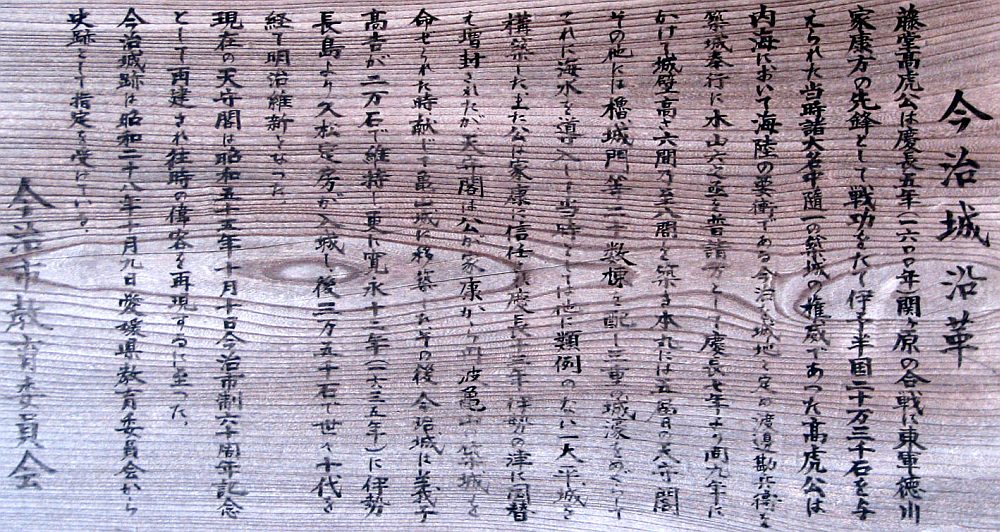 今治城沿革
藤堂高虎公は慶長五年(一六〇〇年関ヶ原の合戦に東軍徳川
家康方の先鋒として戦功をたて伊予半国二十万三千石を与
えられた当時諸大名中随一の築城の権威であった高虎公は
内海において海陸の要衝である今治を城地と定め渡辺勘兵衛を
築城奉行に木山六之丞を普請方として慶長七年より同九年に
かけて城壁高さ六間乃至八間を築き本丸には五層の天守閣
その他には櫓、城門等二十数棟を配し三重の城濠をめぐらし
これに海水を導入した当時としては他に類例のない一大平城を
構築した又公は家康に信任え慶長十三年伊勢の津に国替
え増封されたが天守閣は公が家康から丹波亀山築城を
命ぜられた時献じて亀山城に移築したその後今治城は義子
高吉が二万石で維持し更に寛永十二年(一六三五年)に伊勢
長島より久松定房が入城し後三万五千石で世々十代を
経て明治維新となった
現在の天守閣は昭和五十五年十月十日今治市制六十周年記念
として再建され往時の偉容を再現するに至った。
今治城跡は昭和二十八年十月九日愛媛県教育委員会から
史跡として指定を受けている。
今治市教育委員会